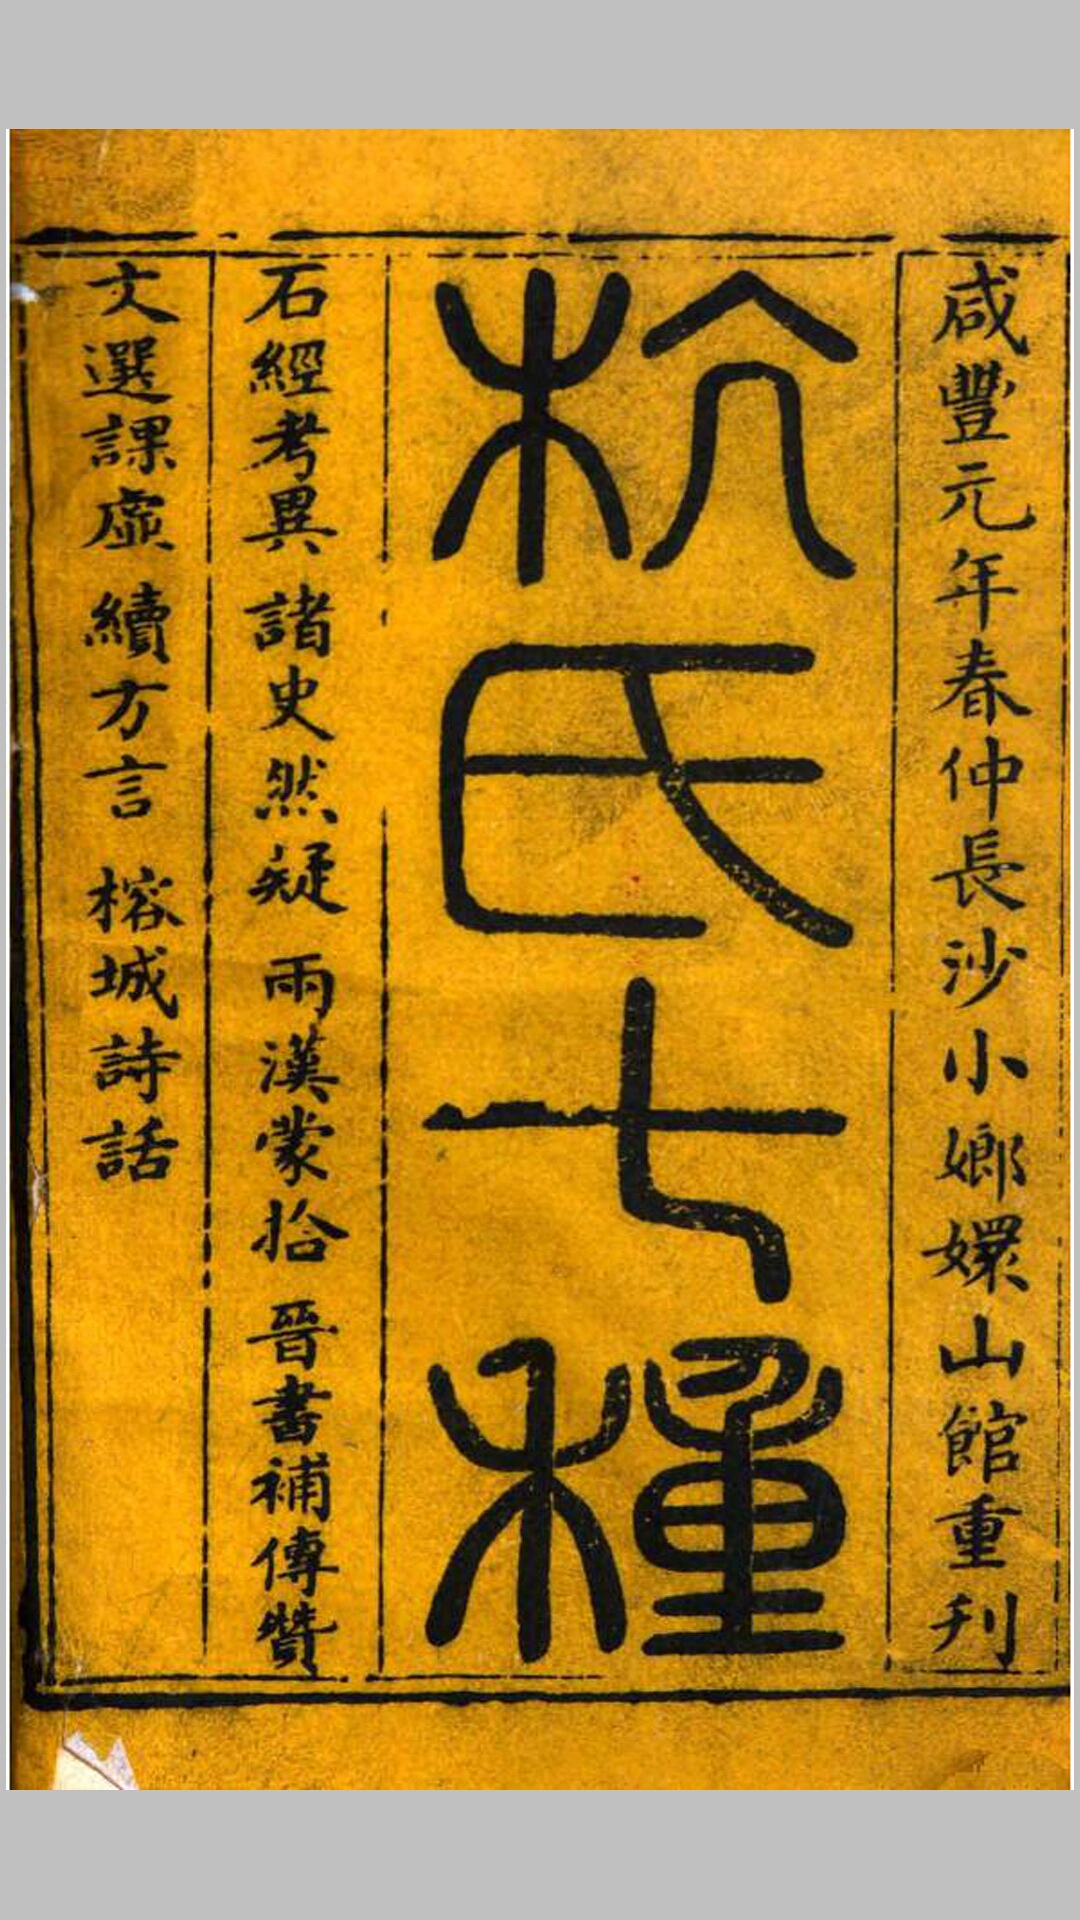 咸豐元年春仲長沙小嫏嬛山館重刊
杭氏七種
石經考異 諸史然疑 兩漢蒙拾 晉書補傳贊
文選課虛 續方言 榕城詩話